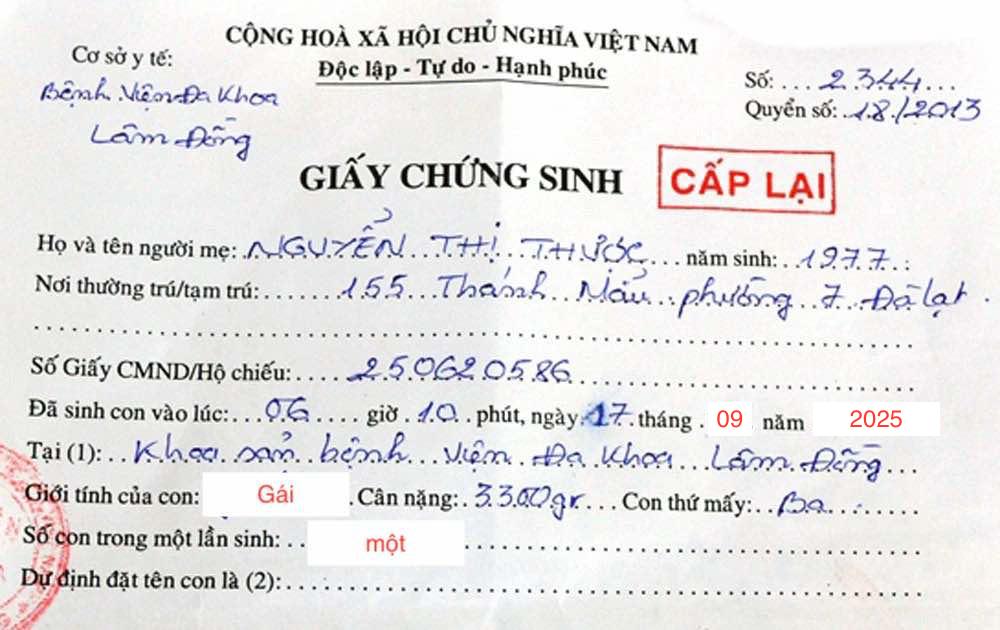 CỘNG HOÀ XÃ HỘI CHỦ NGHĨA VIỆT NAM
Độc lập - Tự do - Hạnh phúc
Cơ sở y tế:
Bệnh Viện Đa Khoa
Lâm Đồng
Số: 2344
Quyển số: 18/2013
GIẤY CHỨNG SINH
CẤP LẠI
Họ và tên người mẹ: NGUYỂN THỊ THƯỚC năm sinh: 1977
Nơi thường trú/tạm trú: 155 Thánh Mẫu phường 7 Đà lạt
Số Giấy CMND/Hộ chiếu: 250620586
Đã sinh con vào lúc: 06 giờ 10 phút, ngày 17 tháng 09 năm 2025
Tại (1): Khoa sản bệnh viện Đa Khoa Lâm Đồng
Giới tính của con: Gái Cân nặng: 3300gr Con thứ mấy: Ba
Số con trong một lần sinh: một
Dự định đặt tên con là (2):